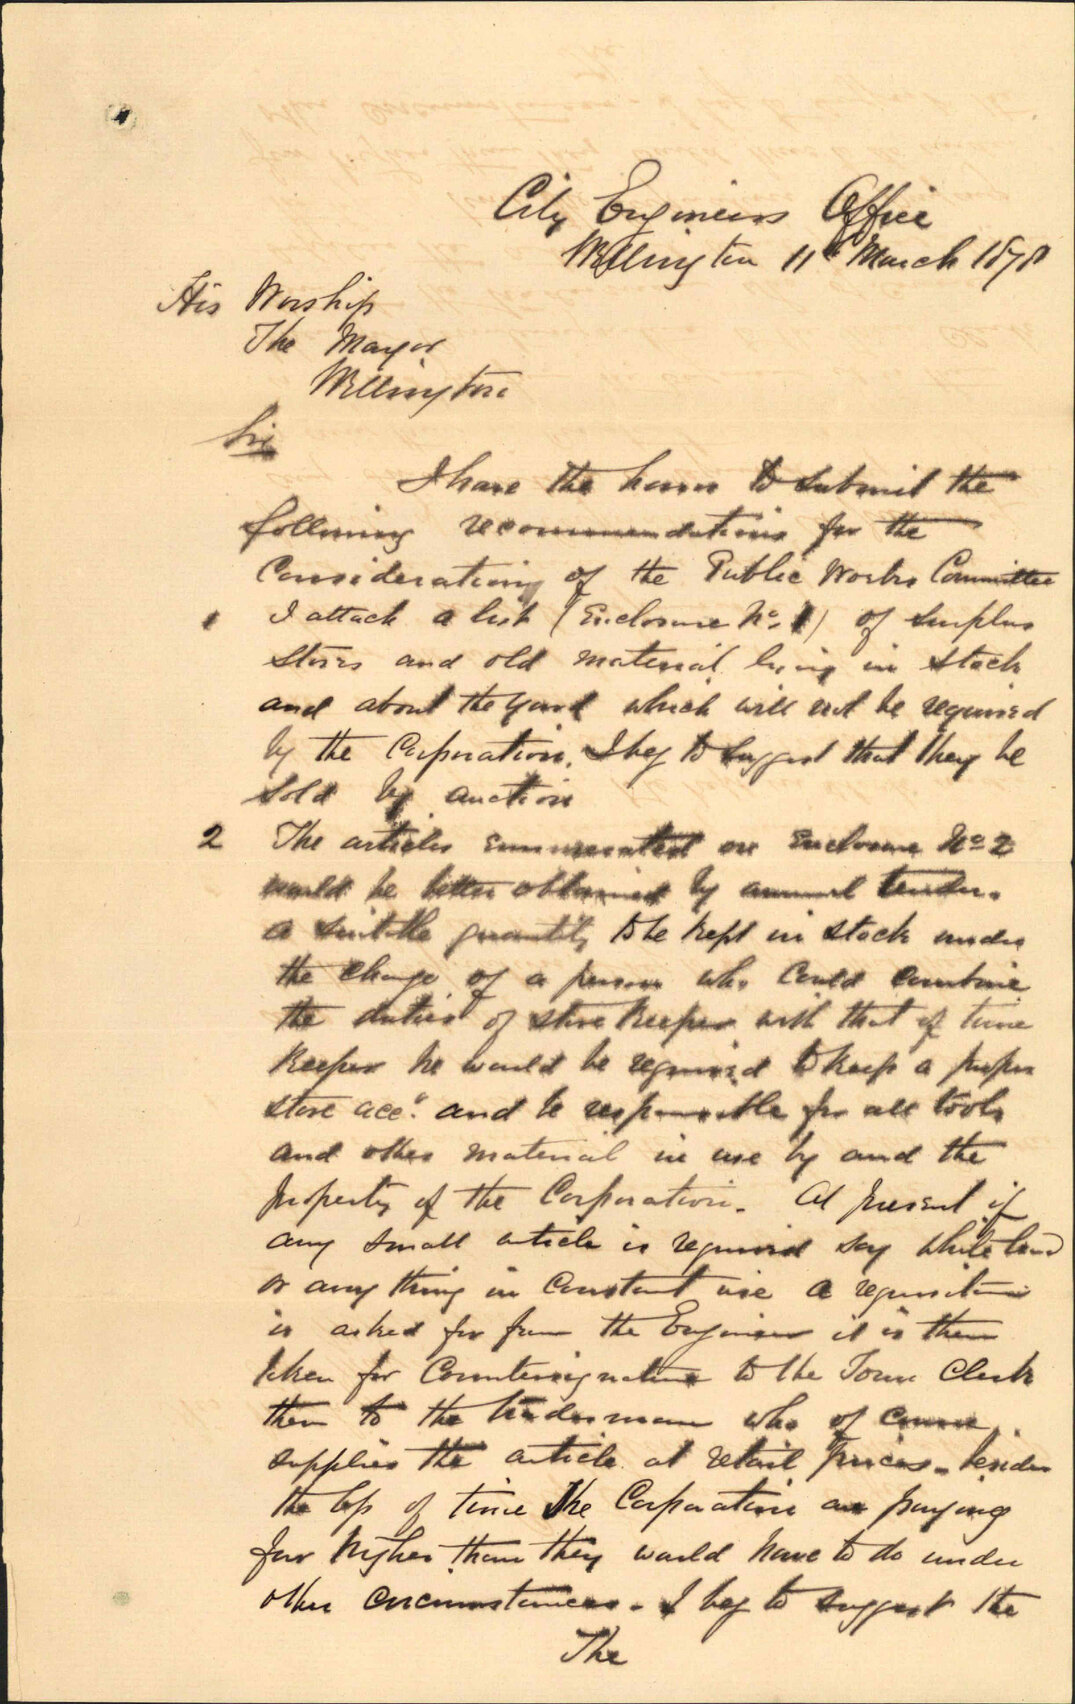 City Engineers Office
Wellington 11th March 1878
His Worship
The Mayor
Wellington
Sir
I have the honor to submit the
following recommendations for the
Consideration of the Public Works Committee
1 I attach a list (Enclosure No. 1) of surplus
stores and old material lying in stock
and about the yard which will not be required
by the Corporation. I beg to suggest that they be
sold by auction
2 The articles enumerated on Enclosure No 2
would be better obtained by annual tender.
a suitable quantity to be kept in stock under
the charge of a person who could combine
the duties of store keeper with that of time
keeper he would be required to keep a proper
store acct. and be responsible for all tools
and other material in use by and the
property of the Corporation. At present if
any small article is required say white lead
or any thing in constant use a requisition
is asked for from the Engineer it is then
taken for Countersignature to the Town Clerk
then to the tradesman who of course
supplies the article at retail prices. besides
the loss of time the Corporation are paying
far higher than they would have to do under
other circumstances. I beg to suggest the
The